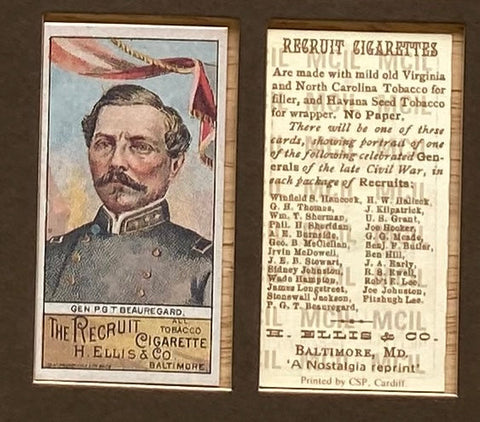 GEN. P.G.T. BEAUREGARD.
THE RECRUIT
ALL
TOBACCO
CIGARETTE
H. ELLIS & CO.
BALTIMORE.
RECRUIT CIGARETTES
Are made with mild old Virginia
and North Carolina Tobacco for
filler, and Havana Seed Tobacco
for wrapper. No Paper.
There will be one of these
cards, showing portrait of one
of the following celebrated Gen-
erals of the late Civil War, in
each package of Recruits:
Winfield S. Hancock, H. W. Halleck,
G. H. Thomas, J. Kilpatrick,
Wm. T. Sherman, U. S. Grant,
Phil. H Sheridan, Joe Hooker,
A. E. Burnside, G. G. Meade,
Geo. B McClellan, Benj. F. Butler,
Irvin McDowell, Ben Hill,
J. E. B. Stewart, J. A. Early,
Sidney Johnston, R. S. Ewell,
Wade Hampton, Rob't E. Lee,
James Longstreet, Joe Johnston,
Stonewall Jackson, Fitzhugh Lee.
P. G. T. Beauregard,
H. ELLIS & CO.
BALTIMORE, MD.
'A Nostalgia reprint'
Printed by CSP, Cardiff.
MCIL MCIL